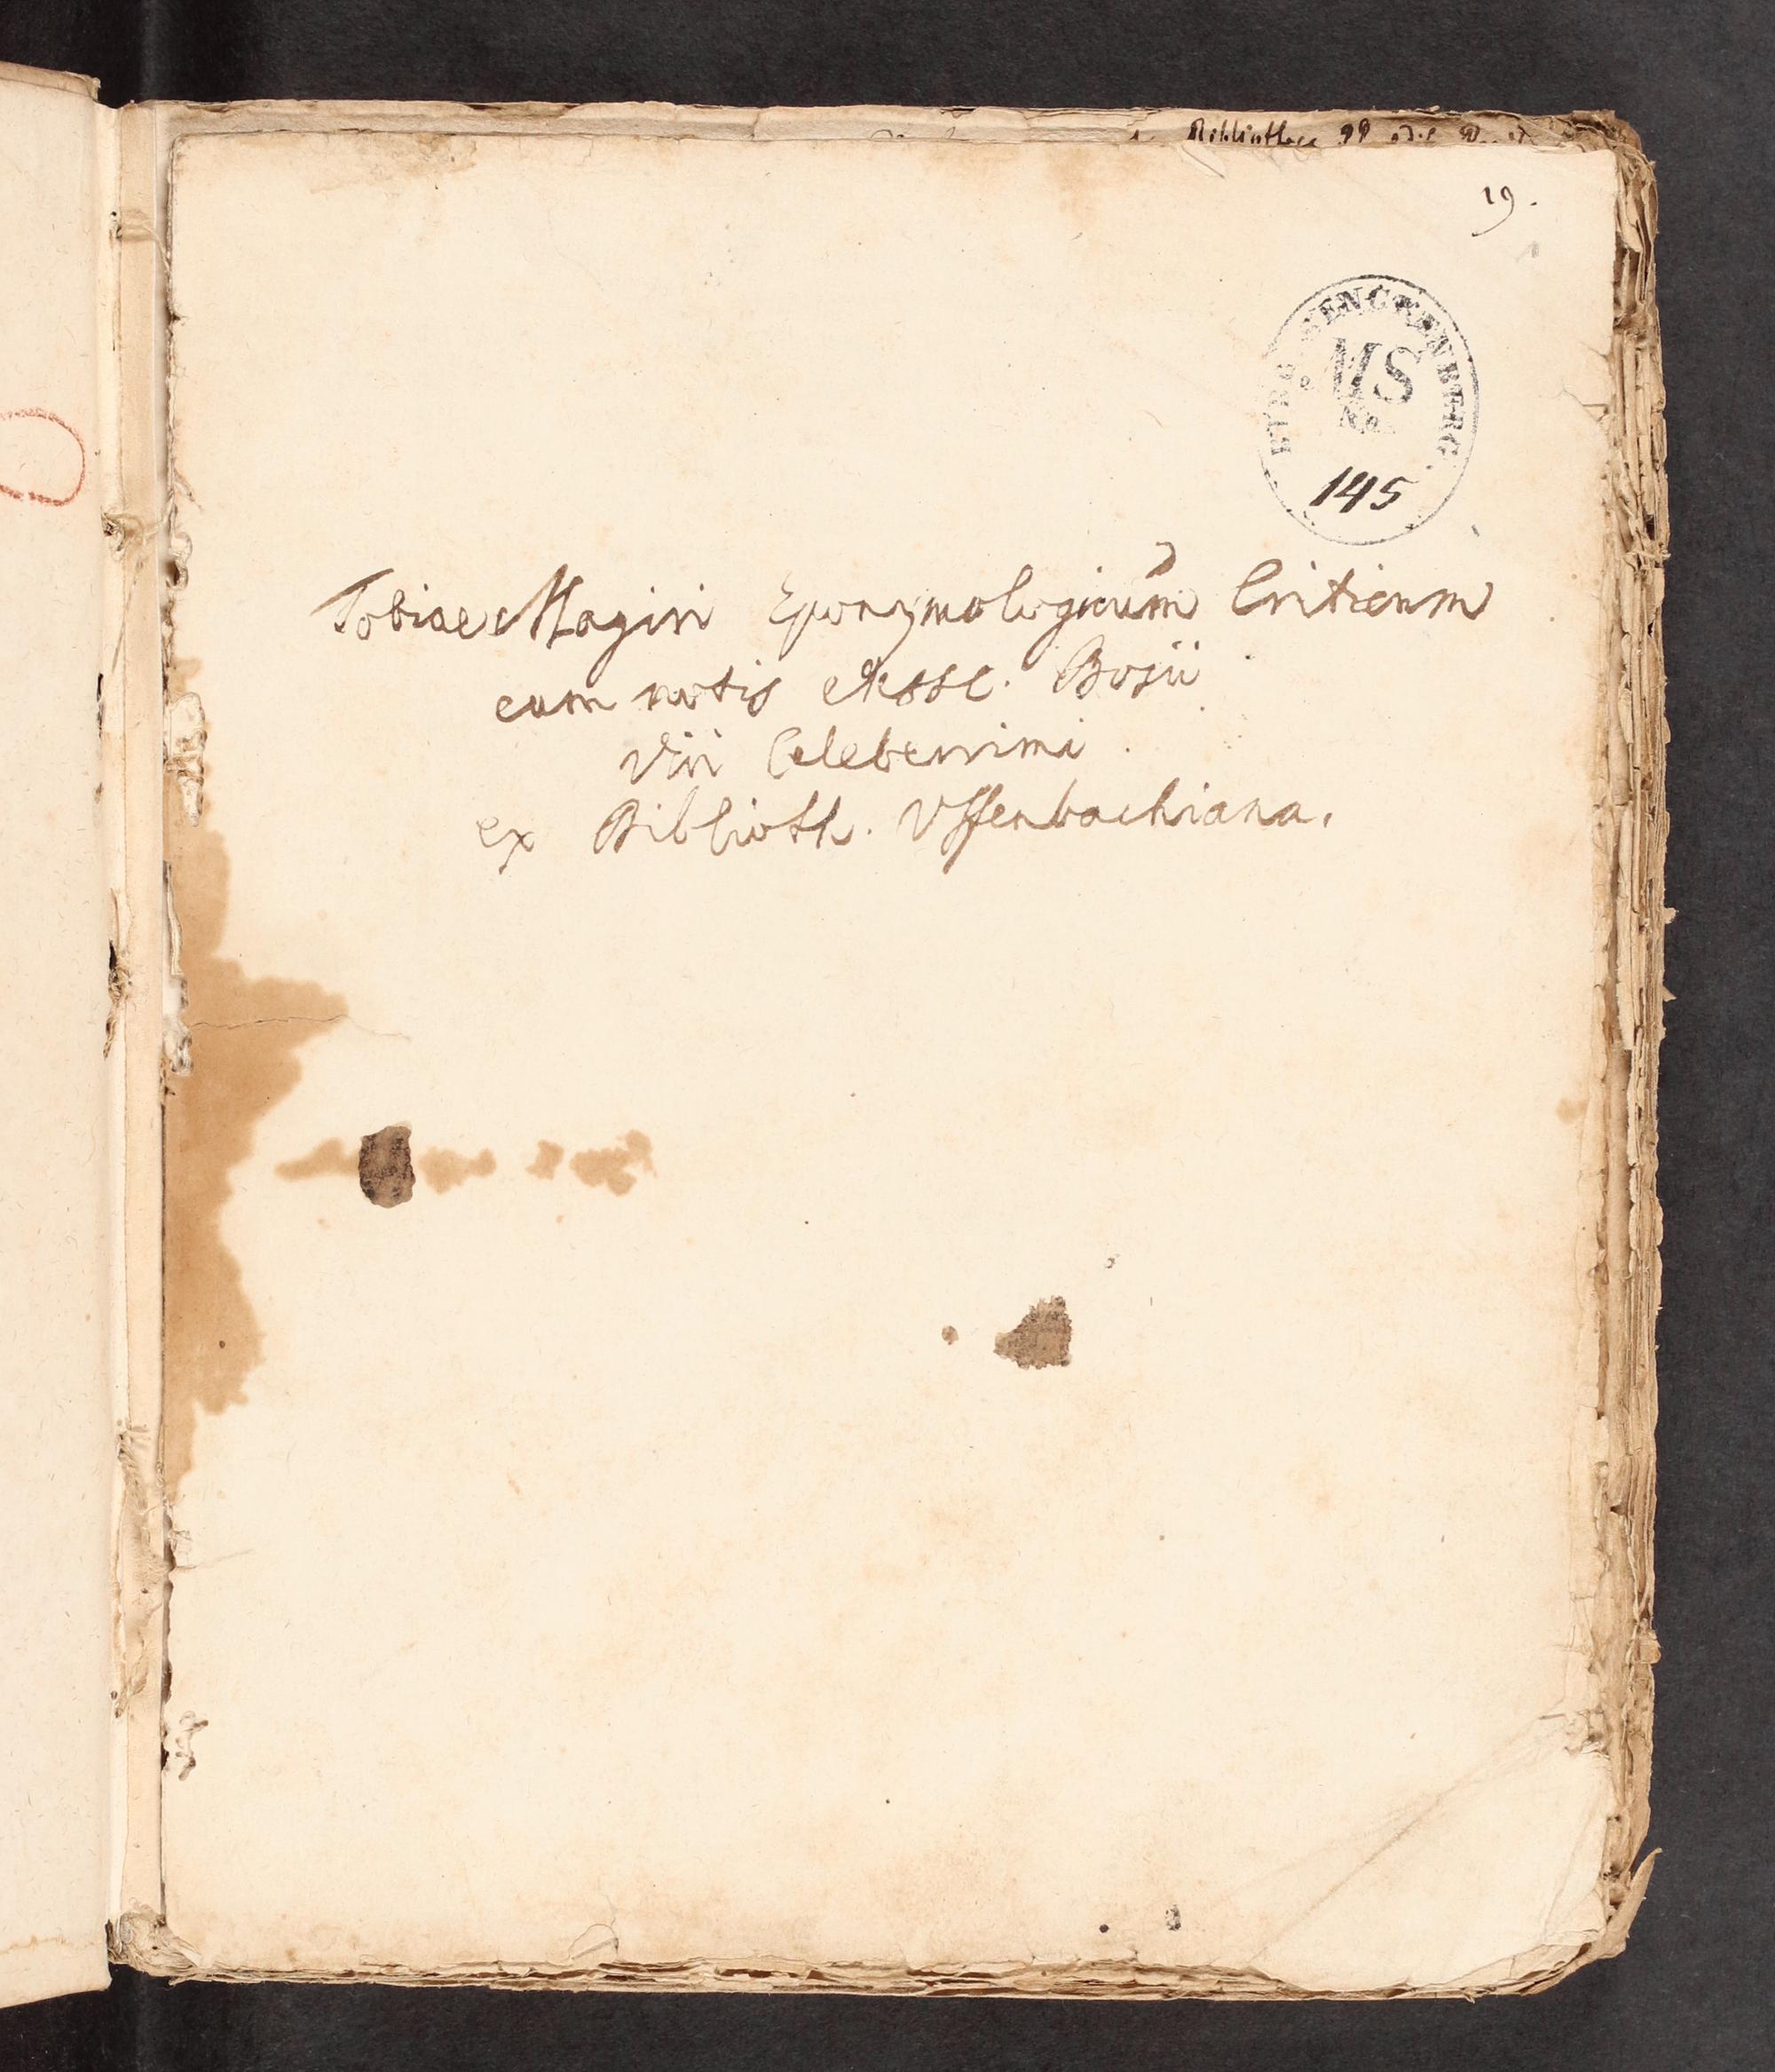 Bibliotheca
19.
BIBL. SENCKENBERG.
MS
No
145
Tobiae Magiri Eponymologicum Criticum
cum notis Mssc. Bosii
Viri Celeberrimi.
ex Biblioth. Uffenbachiana.